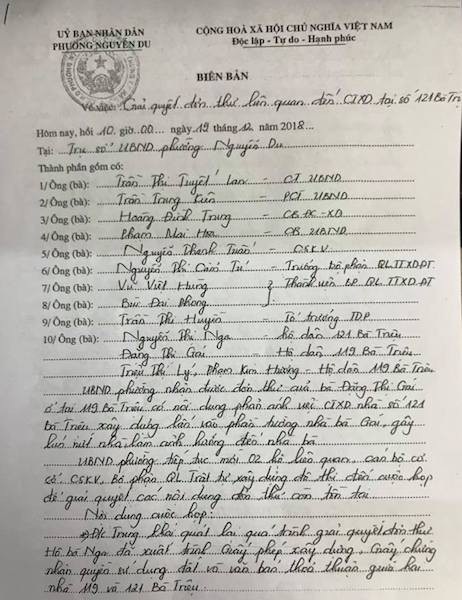 UỶ BAN NHÂN DÂN
PHƯỜNG NGUYỄN DU
CỘNG HOÀ XÃ HỘI CHỦ NGHĨA VIỆT NAM
Độc lập - Tự do - Hạnh phúc
BIÊN BẢN
Về việc: Giải quyết đơn thư liên quan đến CTXD tại số 121 Bà Triệu
Hôm nay, hồi 10 giờ 00 ngày 19 tháng 12 năm 2018
Tại: Trụ sở UBND phường Nguyễn Du
Thành phần gồm có:
1/ Ông (bà): Trần Thị Tuyết Lan - CT UBND
2/ Ông (bà): Trần Trung Kiên - PCT UBND
3/ Ông (bà): Hoàng Đình Trung - CB ĐC-XD
4/ Ông (bà): Phạm Mai Hoa - CB UBND
5/ Ông (bà): Nguyễn Thanh Tuấn - CSKV
6/ Ông (bà): Nguyễn Thị Cẩm Tú - Trưởng bộ phận QL TTXD ĐT
7/ Ông (bà): Vũ Việt Hưng - Thành viên BP QL TTXD ĐT
8/ Ông (bà): Bùi Đại Phong
9/ Ông (bà): Trần Thị Huyền - Tổ trưởng TDP
10/ Ông (bà): Nguyễn Thị Nga - hộ dân 121 Bà Triệu
Đặng Thị Gái - Hộ dân 119 Bà Triệu
Triệu Thị Lý, Phạm Kim Hương - Hộ dân 119 Bà Triệu
UBND phường nhận được đơn thư của bà Đặng Thị Gái
ở tại 119 Bà Triệu có nội dung phản ánh việc CTXD nhà số 121
Bà Triệu xây dựng lấn vào phần tường nhà bà Gái, gây
lún nứt nhà, làm ảnh hưởng đến nhà bà.
UBND phường tiếp tục mời 02 hộ liên quan, cán bộ cơ
sở, CSKV, Bộ phận QL Trật tự xây dựng đô thị đến cuộc họp
để giải quyết các nội dung đơn thư còn tồn tại
Nội dung cuộc họp:
Đ/c Trung khái quát lại quá trình giải quyết đơn thư
Hộ bà Nga đã xuất trình Giấy phép xây dựng, Giấy chứng
nhận quyền sử dụng đất và văn bản thoả thuận giữa hai
nhà 119 và 121 Bà Triệu.